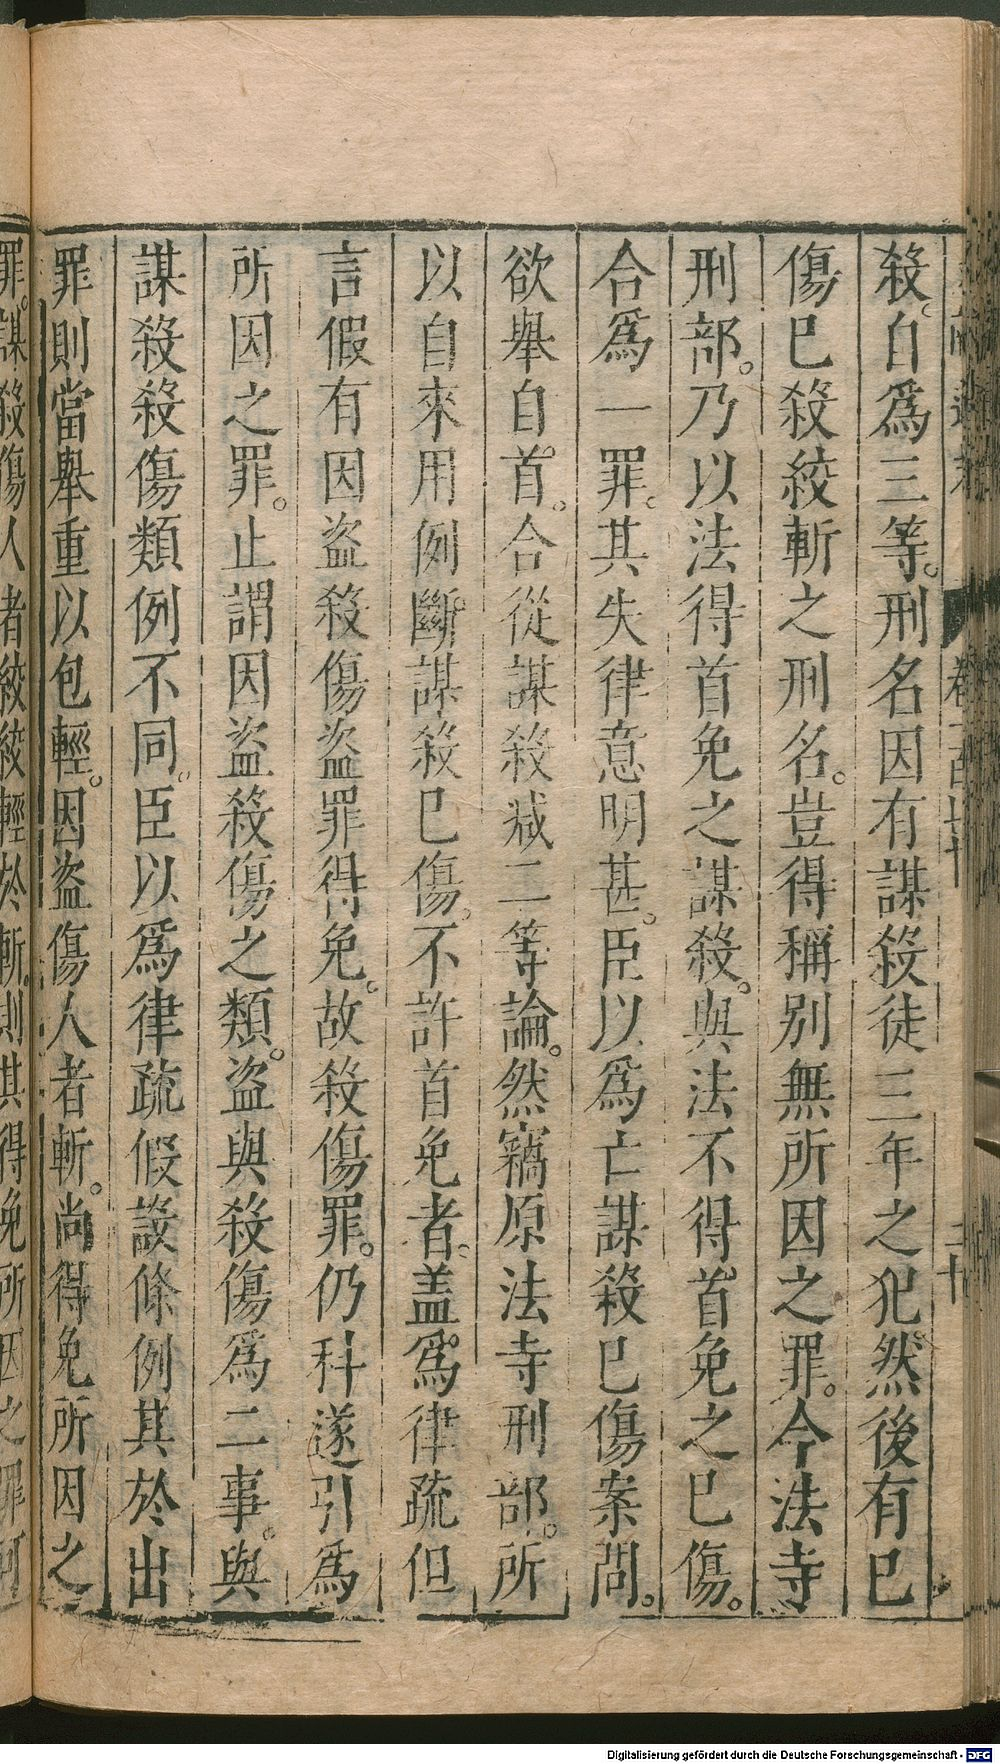 殺。自爲三等。刑名因有謀殺徒三年之犯。然後有巳
傷巳殺絞斬之刑名。豈得稱別無所因之罪。今法寺
刑部。乃以法得首免之謀殺。與法不得首免之巳傷。
合爲一罪。其失律意明甚。臣以爲亡謀殺巳傷案問。
欲舉自首。合從謀殺减二等論。然竊原法寺刑部。所
以自來用例斷謀殺巳傷。不許首免者。盖爲律疏但
言假有因盜殺傷盜罪得免。故殺傷罪。仍科遂引爲
所因之罪。止謂因盜殺傷之類。盜與殺傷爲二事。與
謀殺殺傷類例不同。臣以爲律疏假設條例其於出
罪則當舉重以包輕。因盜傷人者斬。尚得免所因之
罪。謀殺傷人者絞絞輕於斬。則其得免所因之罪可
卷一百七十
二十
Digitalisierung gefördert durch die Deutsche Forschungsgemeinschaft - DFG